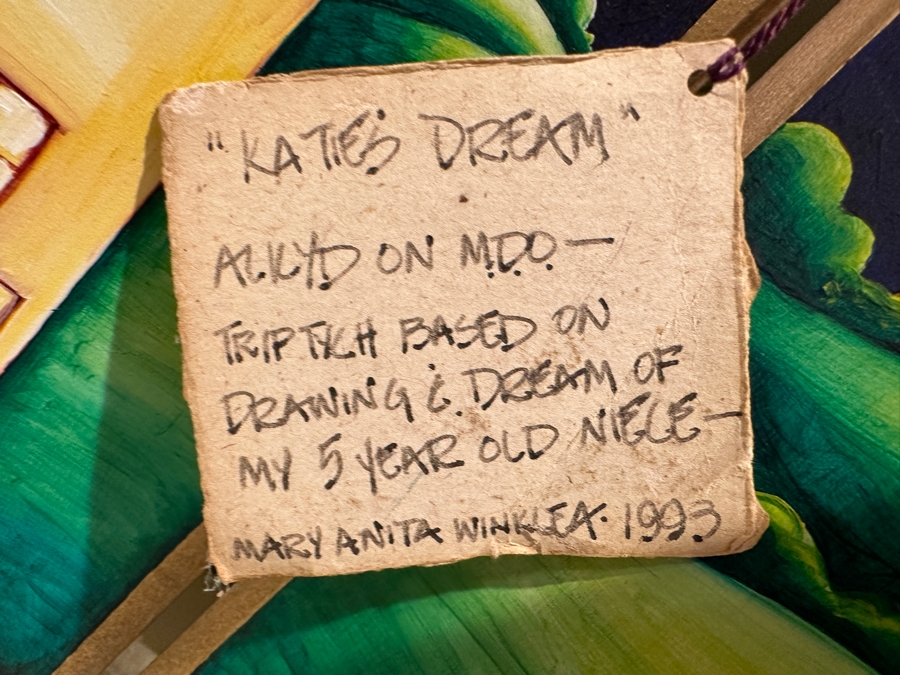 "KATIE'S DREAM"
ALKYD ON M.D.O —
TRIPTYCH BASED ON
DRAWING & DREAM OF
MY 5 YEAR OLD NIECE —
MARY ANITA WINKLEA. 1993